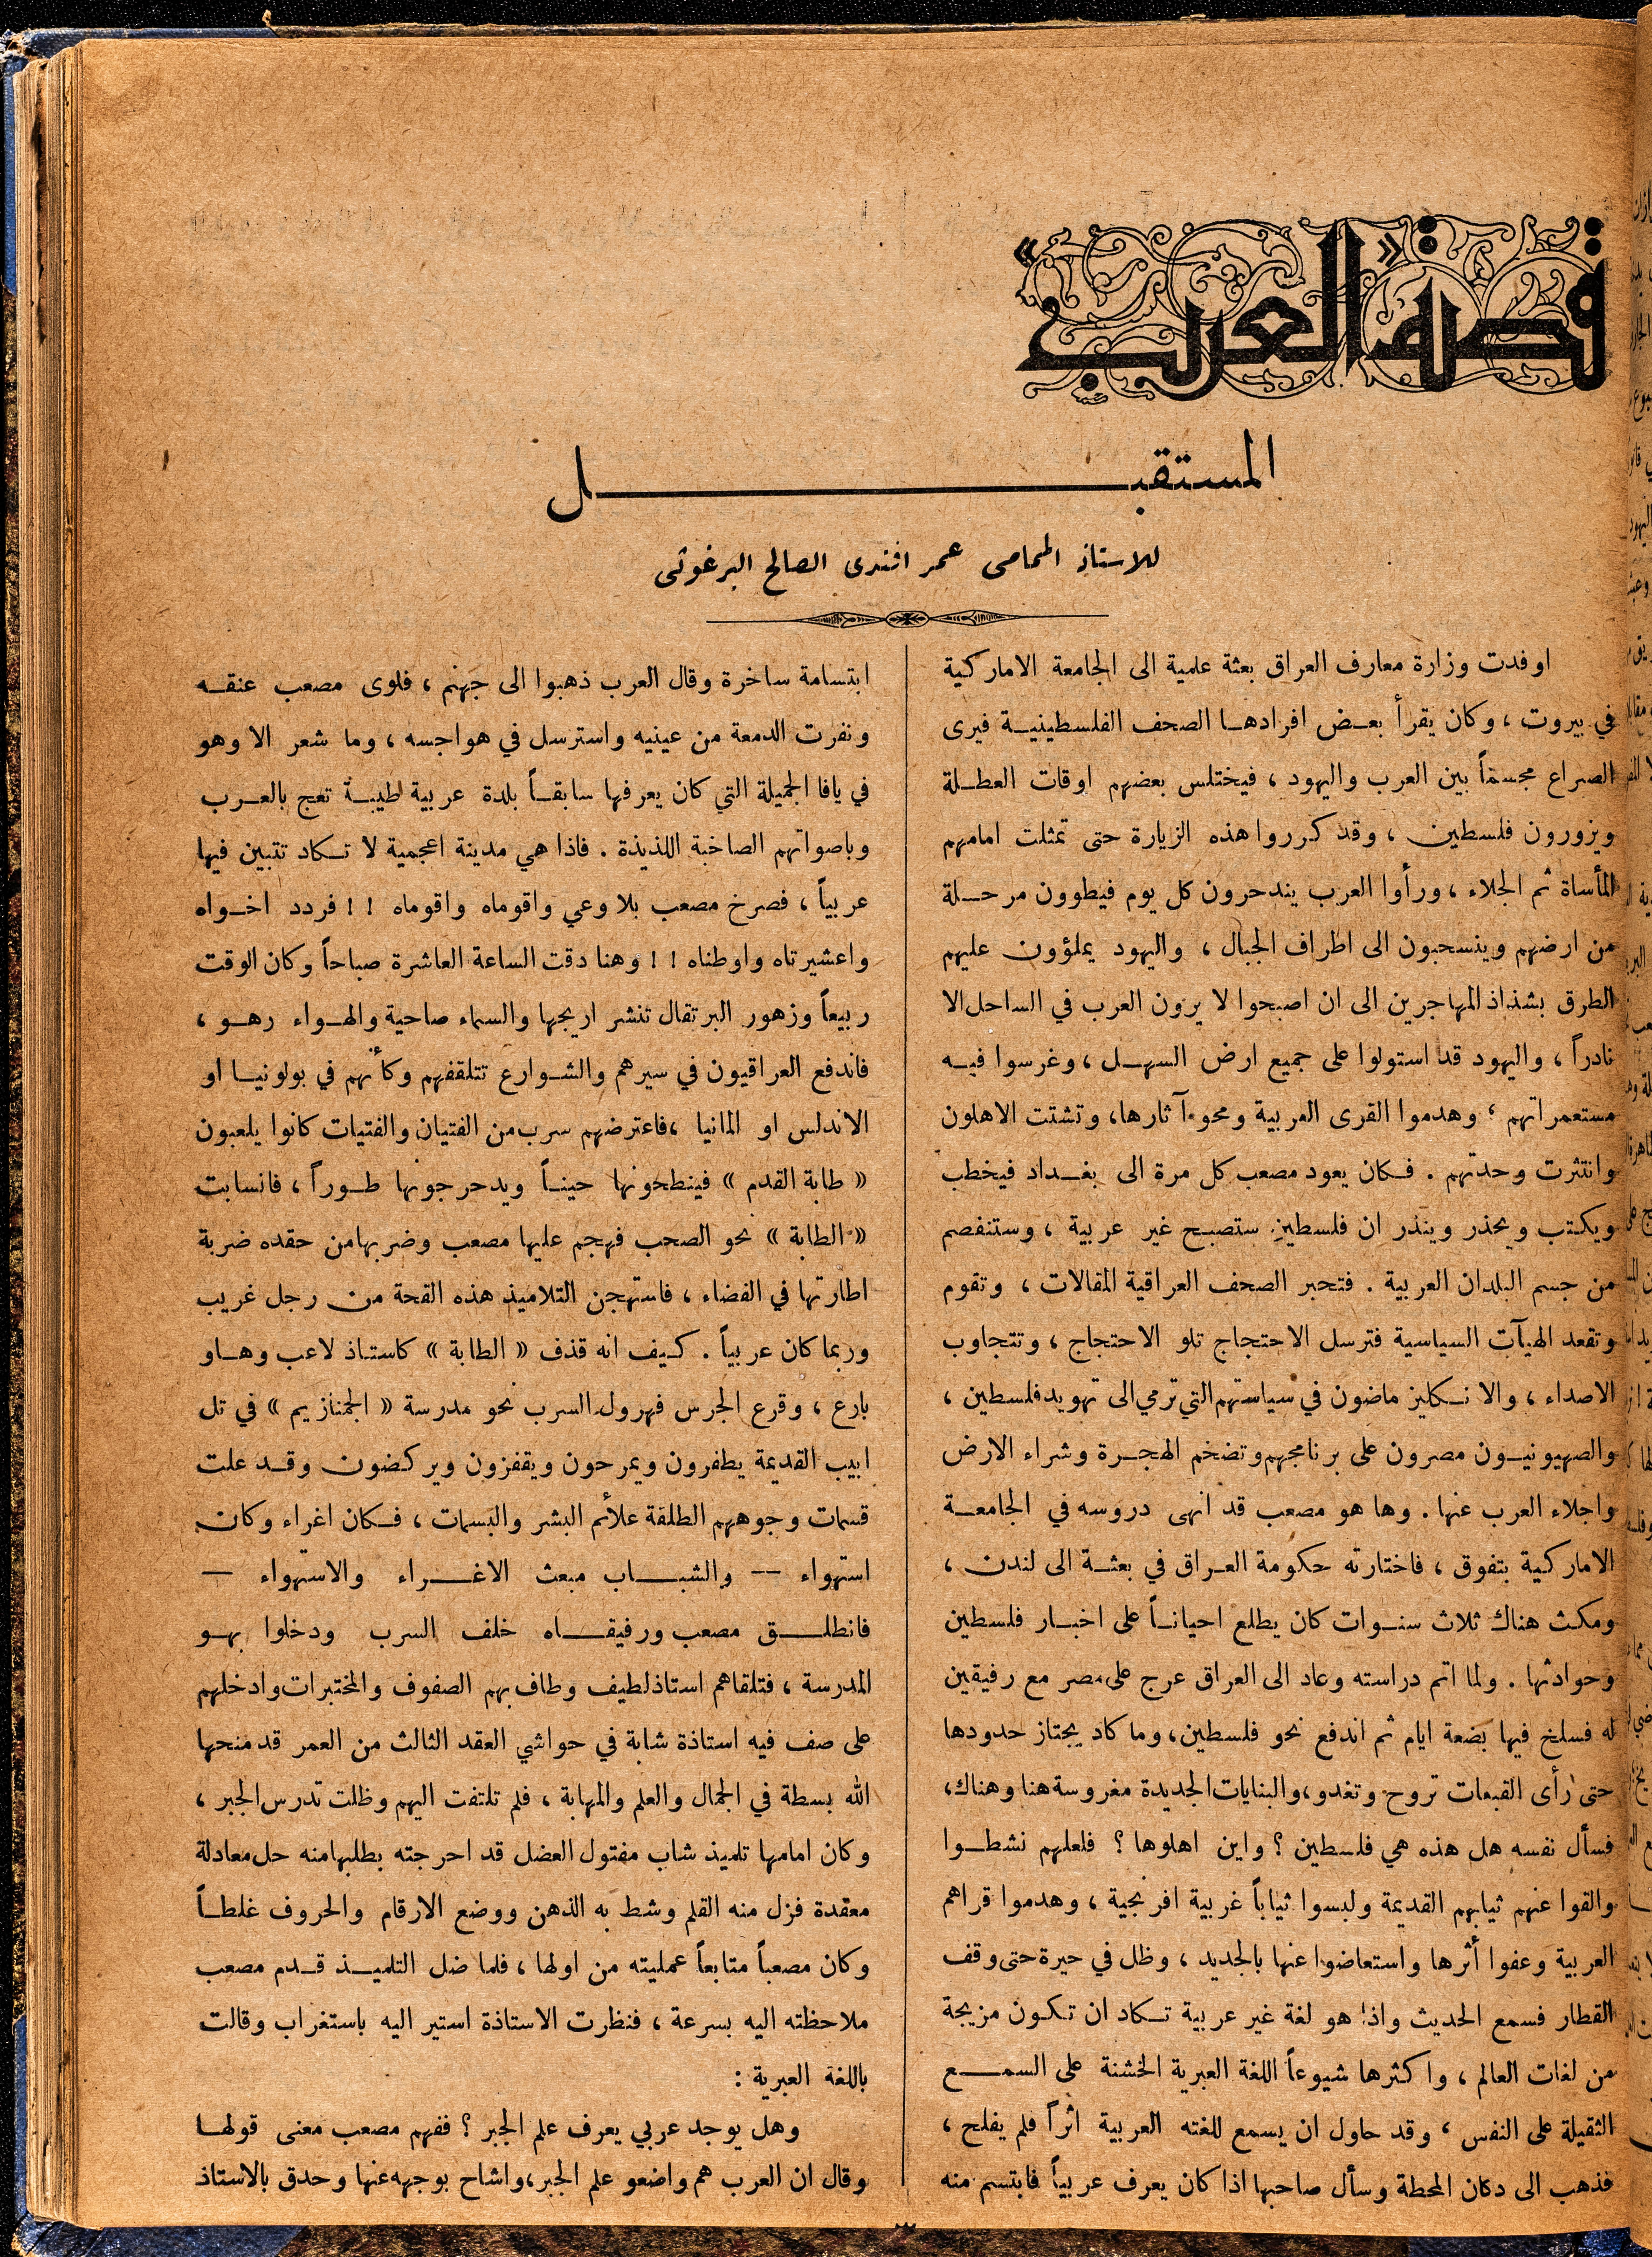 قصة «العرب»
المستقبل
للاستاذ المحامي عمر افندي الصالح البرغوثي
اوفدت وزارة معارف العراق بعثة علمية الى الجامعة الاماركية
في بيروت ، وكان يقرأ بعض افرادها الصحف الفلسطينية فيرى
الصراع مجسماً بين العرب واليهود ، فيختلس بعضهم اوقات العطلة
ويزورون فلسطين ، وقد كرروا هذه الزيارة حتى تمثلت امامهم
المأساة ثم الجلاء ، ورأوا العرب يندحرون كل يوم فيطوون مرحلة
من ارضهم وينسحبون الى اطراف الجبال ، واليهود يملؤون عليهم
الطرق بشذاذ المهاجرين الى ان اصبحوا لا يرون العرب في الساحل الا
نادراً ، واليهود قد استولوا على جميع ارض السهل ، وغرسوا فيه
مستعمراتهم ، وهدموا القرى العربية ومحوا آثارها، وتشتت الاهلون
وانتثرت وحدتهم . فكان يعود مصعب كل مرة الى بغداد فيخطب
ويكتب ويحذر وينذر ان فلسطين ستصبح غير عربية ، وستنفصم
من جسم البلدان العربية . فتحبر الصحف العراقية المقالات ، وتقوم
وتقعد الهيآت السياسية فترسل الاحتجاج تلو الاحتجاج ، وتتجاوب
الاصداء ، والانكليز ماضون في سياستهم التي ترمي الى تهويد فلسطين ،
والصهيونيون مصرون على برنامجهم وتضخم الهجرة وشراء الارض
واجلاء العرب عنها . وها هو مصعب قد انهى دروسه في الجامعة
الاماركية بتفوق ، فاختارته حكومة العراق في بعثة الى لندن ،
ومكث هناك ثلاث سنوات كان يطلع احياناً على اخبار فلسطين
وحوادثها . ولما اتم دراسته وعاد الى العراق عرج على مصر مع رفيقين
له فسلخ فيها بضعة ايام ثم اندفع نحو فلسطين، وما كاد يجتاز حدودها
حتى رأى القبعات تروح وتغدو، والبنايات الجديدة مغروسة هنا وهناك،
فسأل نفسه هل هذه هي فلسطين ؟ واين اهلوها ؟ فلعلهم نشطوا
والقوا عنهم ثيابهم القديمة ولبسوا ثياباً غربية افرنجية ، وهدموا قراهم
العربية وعفوا أثرها واستعاضوا عنها بالجديد ، وظل في حيرة حتى وقف
القطار فسمع الحديث واذا هو لغة غير عربية تكاد ان تكون مزيجة
من لغات العالم ، واكثرها شيوعاً اللغة العبرية الخشنة على السمع
الثقيلة على النفس ، وقد حاول ان يسمع للغته العربية اثراً فلم يفلح ،
فذهب الى دكان المحطة وسأل صاحبها اذا كان يعرف عربياً فابتسم منه
ابتسامة ساخرة وقال العرب ذهبوا الى جهنم ، فلوى مصعب عنقه
ونفرت الدمعة من عينيه واسترسل في هواجسه ، وما شعر الا وهو
في يافا الجميلة التي كان يعرفها سابقاً بلدة عربية طيبة تعج بالعرب
وباصواتهم الصاخبة اللذيذة . فاذا هي مدينة اعجمية لا تكاد تتبين فيها
عربياً ، فصرخ مصعب بلا وعي واقوماه واقوماه ! ! فردد اخواه
واعشيرتاه واوطناه ! ! وهنا دقت الساعة العاشرة صباحاً وكان الوقت
ربيعاً وزهور البرتقال تنشر اريجها والسماء صاحية والهواء رهو ،
فاندفع العراقيون في سيرهم والشوارع تتلقفهم وكأنهم في بولونيا او
الاندلس او المانيا ، فاعترضهم سرب من الفتيان والفتيات كانوا يلعبون
« طابة القدم » فينطحونها حيناً ويدحرجونها طوراً ، فانسابت
« الطابة » نحو الصحب فهجم عليها مصعب وضربها من حقده ضربة
اطارتها في الفضاء ، فاستهجن التلاميذ هذه القحة من رجل غريب
وربما كان عربياً . كيف انه قذف « الطابة » كاستاذ لاعب وهاو
بارع ، وقرع الجرس فهرول السرب نحو مدرسة « الجمنازيم » في تل
ابيب القديمة يطفرون ويمرحون ويقفزون ويركضون وقد علت
قسمات وجوههم الطلقة علائم البشر والبسمات ، فكان اغراء وكان
استهواء -- والشباب مبعث الاغراء والاستهواء —
فانطلق مصعب ورفيقاه خلف السرب ودخلوا بهو
المدرسة ، فتلقاهم استاذ لطيف وطاف بهم الصفوف والمختبرات وادخلهم
على صف فيه استاذة شابة في حواشي العقد الثالث من العمر قد منحها
الله بسطة في الجمال والعلم والمهابة ، فلم تلتفت اليهم وظلت تدرس الجبر ،
وكان امامها تلميذ شاب مفتول العضل قد احرجته بطلبها منه حل معادلة
معقدة فزل منه القلم وشط به الذهن ووضع الارقام والحروف غلطاً
وكان مصعباً متابعاً عمليته من اولها ، فلما ضل التلميذ قدم مصعب
ملاحظته اليه بسرعة ، فنظرت الاستاذة استير اليه باستغراب وقالت
باللغة العبرية :
وهل يوجد عربي يعرف علم الجبر ؟ ففهم مصعب معنى قولها
وقال ان العرب هم واضعو علم الجبر، واشاح بوجهه عنها وحدق بالاستاذ